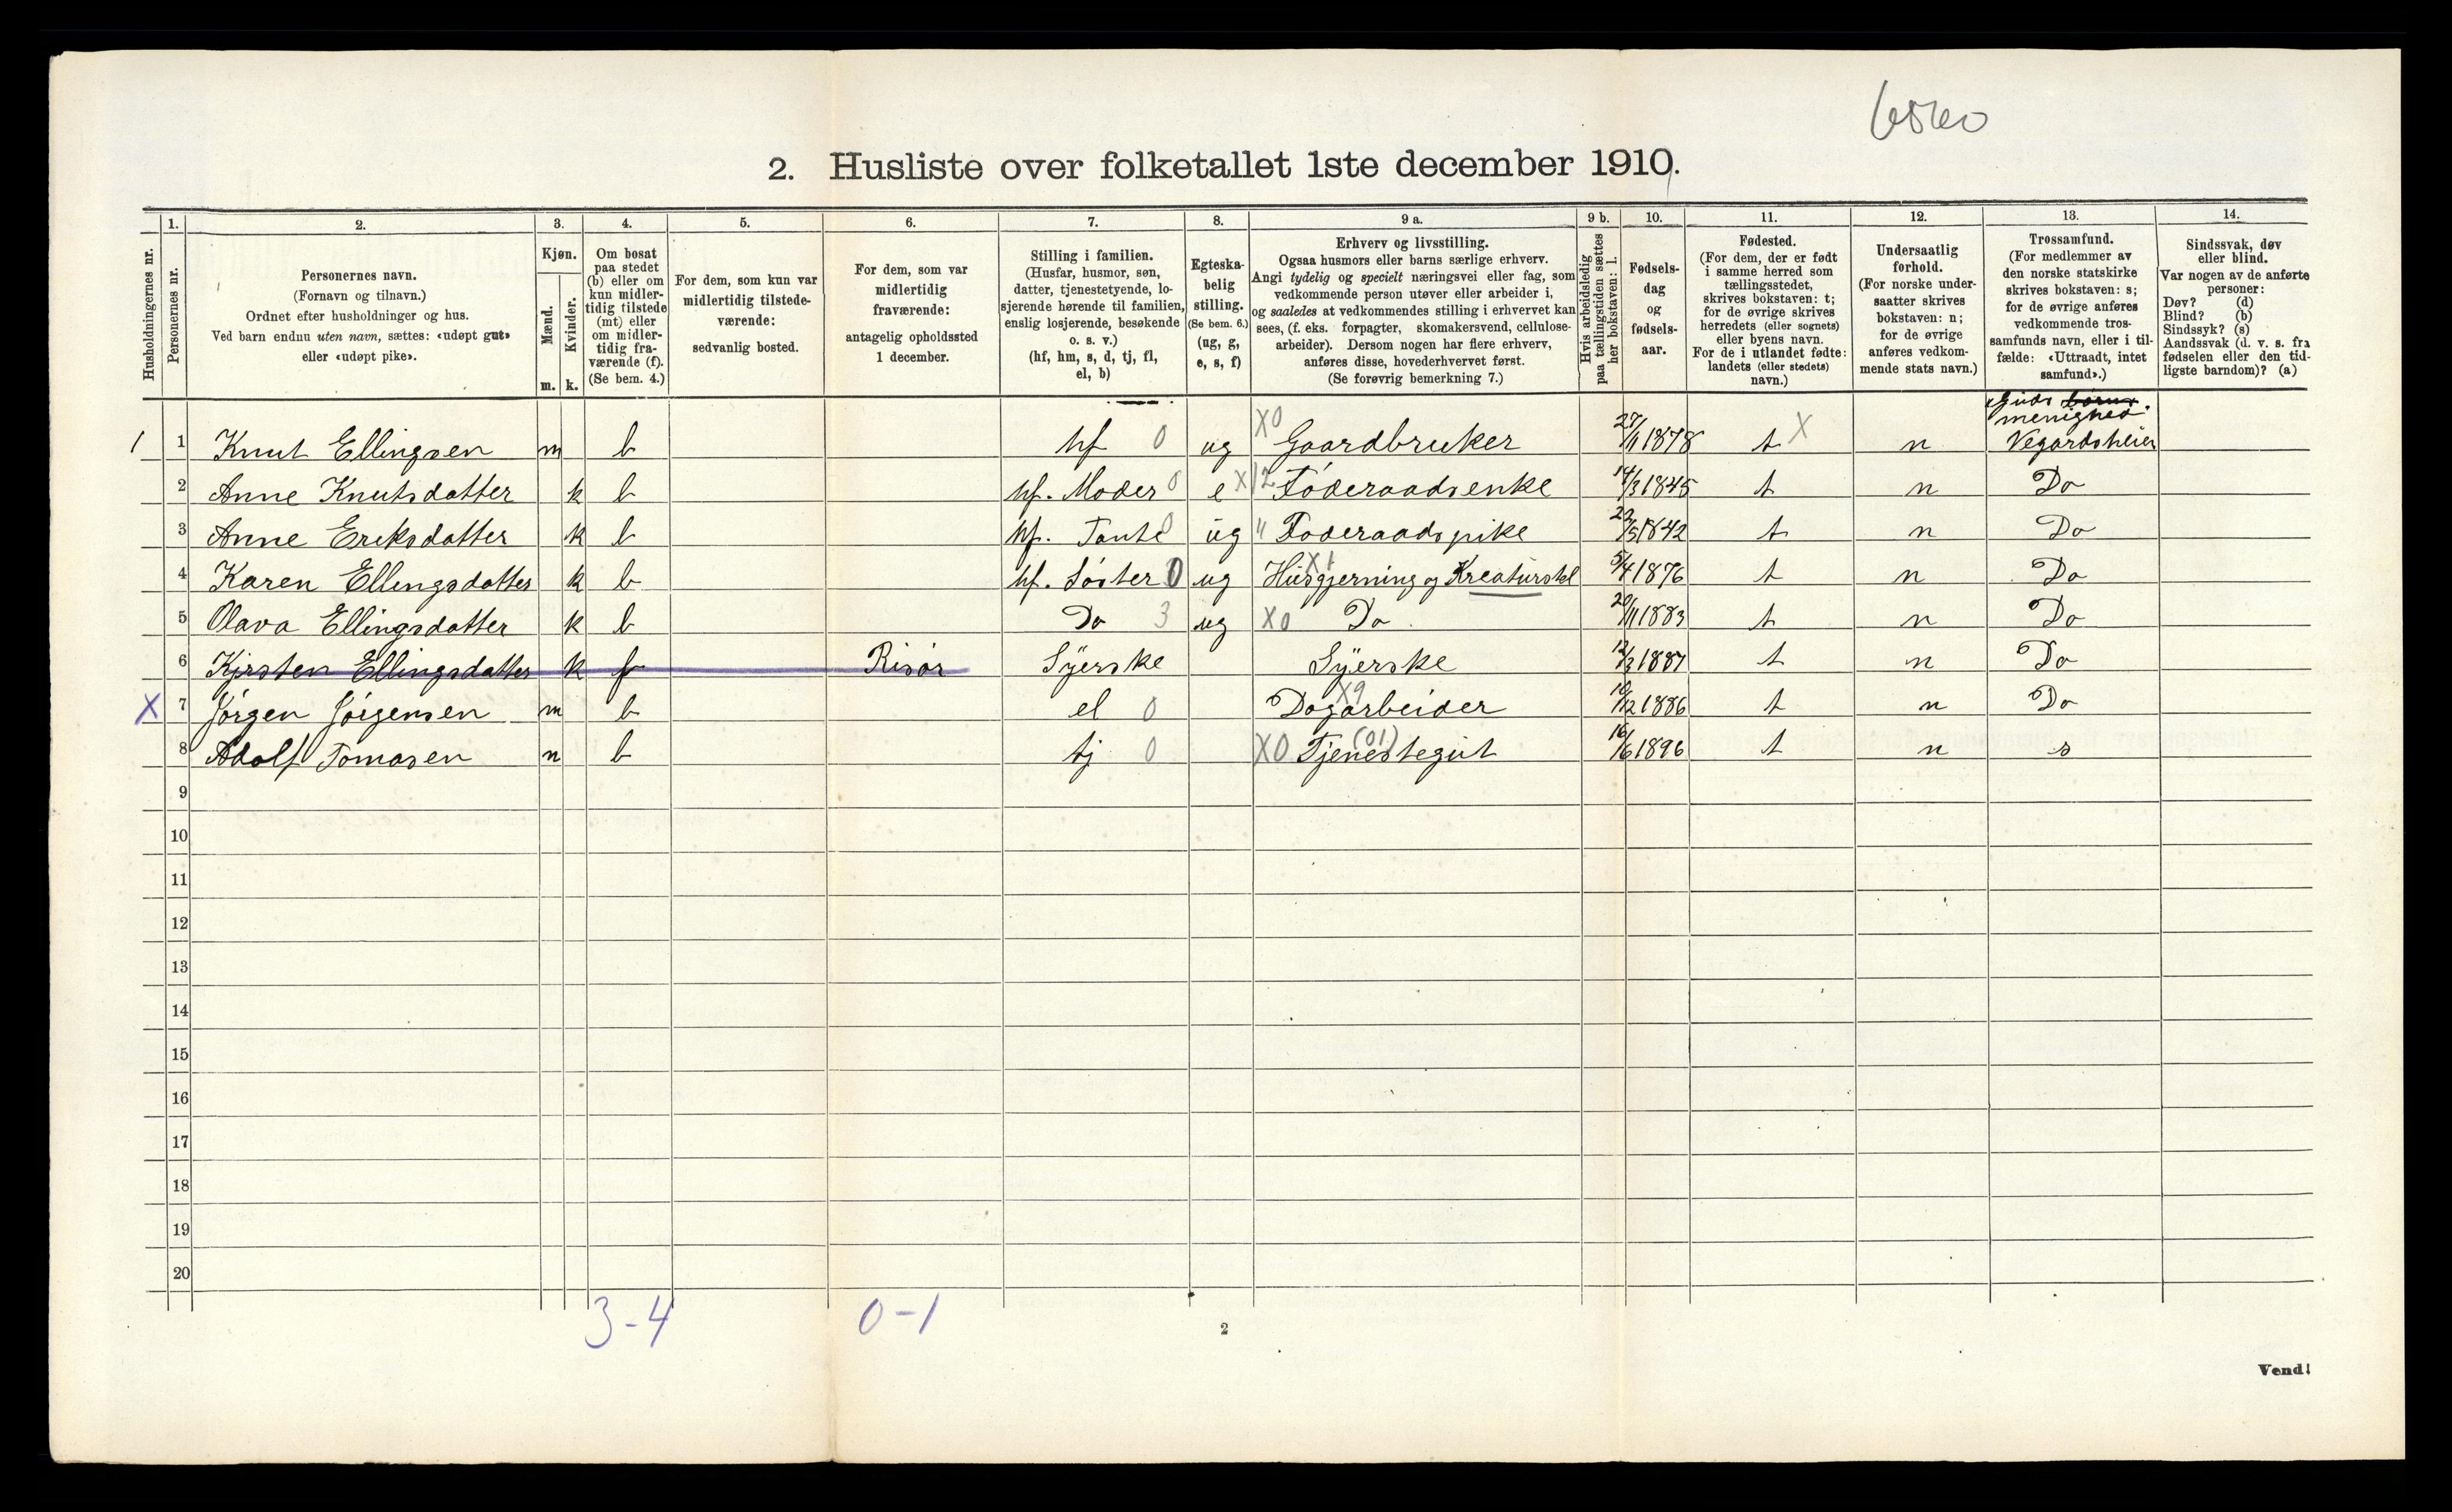 2. Husliste over folketallet 1ste december 1910.
1. 2. 3. 4. 5. 6. 7. 8. 9 a. 9 b. 10. 11. 12. 13. 14.
Husholdningernes nr.
Personernes nr.
Personernes navn.
(Fornavn og tilnavn.)
Ordnet efter husholdninger og hus.
Ved barn endnu uten navn, sættes: «udøpt gut»
eller «udøpt pike».
Kjøn.
Mænd.
Kvinder.
m. k.
Om bosat
paa stedet
(b) eller om
kun midler-
tidig tilstede
(mt) eller
om midler-
tidig fra-
værende (f).
(Se bem. 4.)
For dem, som kun var
midlertidig tilstede-
værende:
sedvanlig bosted.
For dem, som var
midlertidig
fraværende:
antagelig opholdssted
1 december.
Stilling i familien.
(Husfar, husmor, søn,
datter, tjenestetyende, lo-
sjerende hørende til familien,
enslig losjerende, besøkende
o. s. v.)
(hf, hm, s, d, tj, fl,
el, b)
Egteska-
belig
stilling.
(Se bem. 6.)
(ug, g,
e, s, f)
Erhverv og livsstilling.
Ogsaa husmors eller barns særlige erhverv.
Angi tydelig og specielt næringsvei eller fag, som
vedkommende person utøver eller arbeider i,
og saaledes at vedkommendes stilling i erhvervet kan
sees, (f. eks. forpagter, skomakersvend, cellulose-
arbeider). Dersom nogen har flere erhverv,
anføres disse, hovederhvervet først.
(Se forøvrig bemerkning 7.)
Hvis arbeidsledig
paa tællingstiden sættes
her bokstaven: l.
Fødsels-
dag
og
fødsels-
aar.
Fødested.
(For dem, der er født
i samme herred som
tællingsstedet,
skrives bokstaven: t;
for de øvrige skrives
herredets (eller sognets)
eller byens navn.
For de i utlandet fødte:
landets (eller stedets)
navn.)
Undersaatlig
forhold.
(For norske under-
saatter skrives
bokstaven: n;
for de øvrige
anføres vedkom-
mende stats navn.)
Trossamfund.
(For medlemmer av
den norske statskirke
skrives bokstaven: s;
for de øvrige anføres
vedkommende tros-
samfunds navn, eller i til-
fælde: «Uttraadt, intet
samfund».)
Sindssvak, døv
eller blind.
Var nogen av de anførte
personer:
Døv? (d)
Blind? (b)
Sindssyk? (s)
Aandssvak (d. v. s. fra
fødselen eller den tid-
ligste barndom)? (a)
Guds børns
menighed
1 1 Knut Ellingsen m b hf 0 ug X0 Gaardbruker 27/11 1878 t X n Vegardsheien
2 Anne Knutsdatter k b hf. Moder 0 e X12 Föderaadsenke 14/3 1845 t n Do
3 Anne Eriksdatter k b hf. Tante 0 ug " Föderaadspike 22/5 1842 t n Do
4 Karen Ellingsdatter k b hf. Söster 0 ug X1 Husgjerning og Kreaturstel 5/4 1876 t n Do
5 Olava Ellingsdatter k b Do 3 ug X0 Do 20/11 1883 t n Do
6 Kjirsten Ellingsdatter k f Risör Syerske Syerske 12/3 1887 t n Do
X 7 Jörgen Jörgensen m b el 0 X9 Dagarbeider 10/12 1886 t n Do
8 Adolf Tomasen m b tj 0 X0 (01) Tjenestegut 16/6 1896 t n s
9
10
11
12
13
14
15
16
17
18
19
20
3-4 0-1
2
Vend!